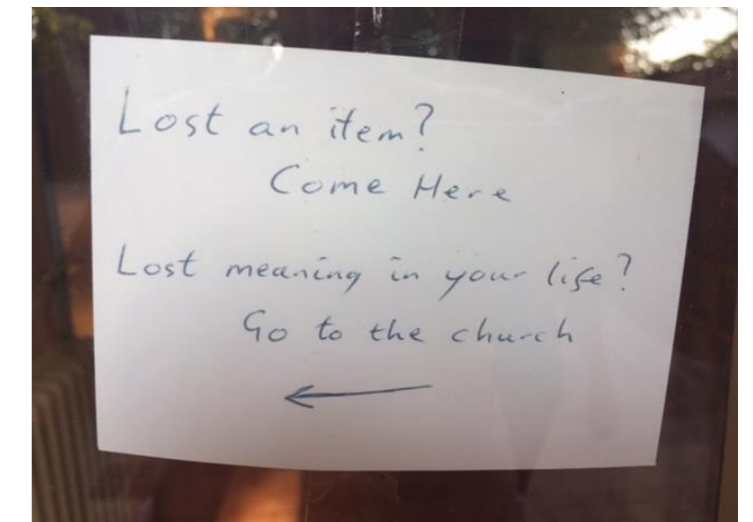 Lost an item?
Come Here
Lost meaning in your life?
Go to the church